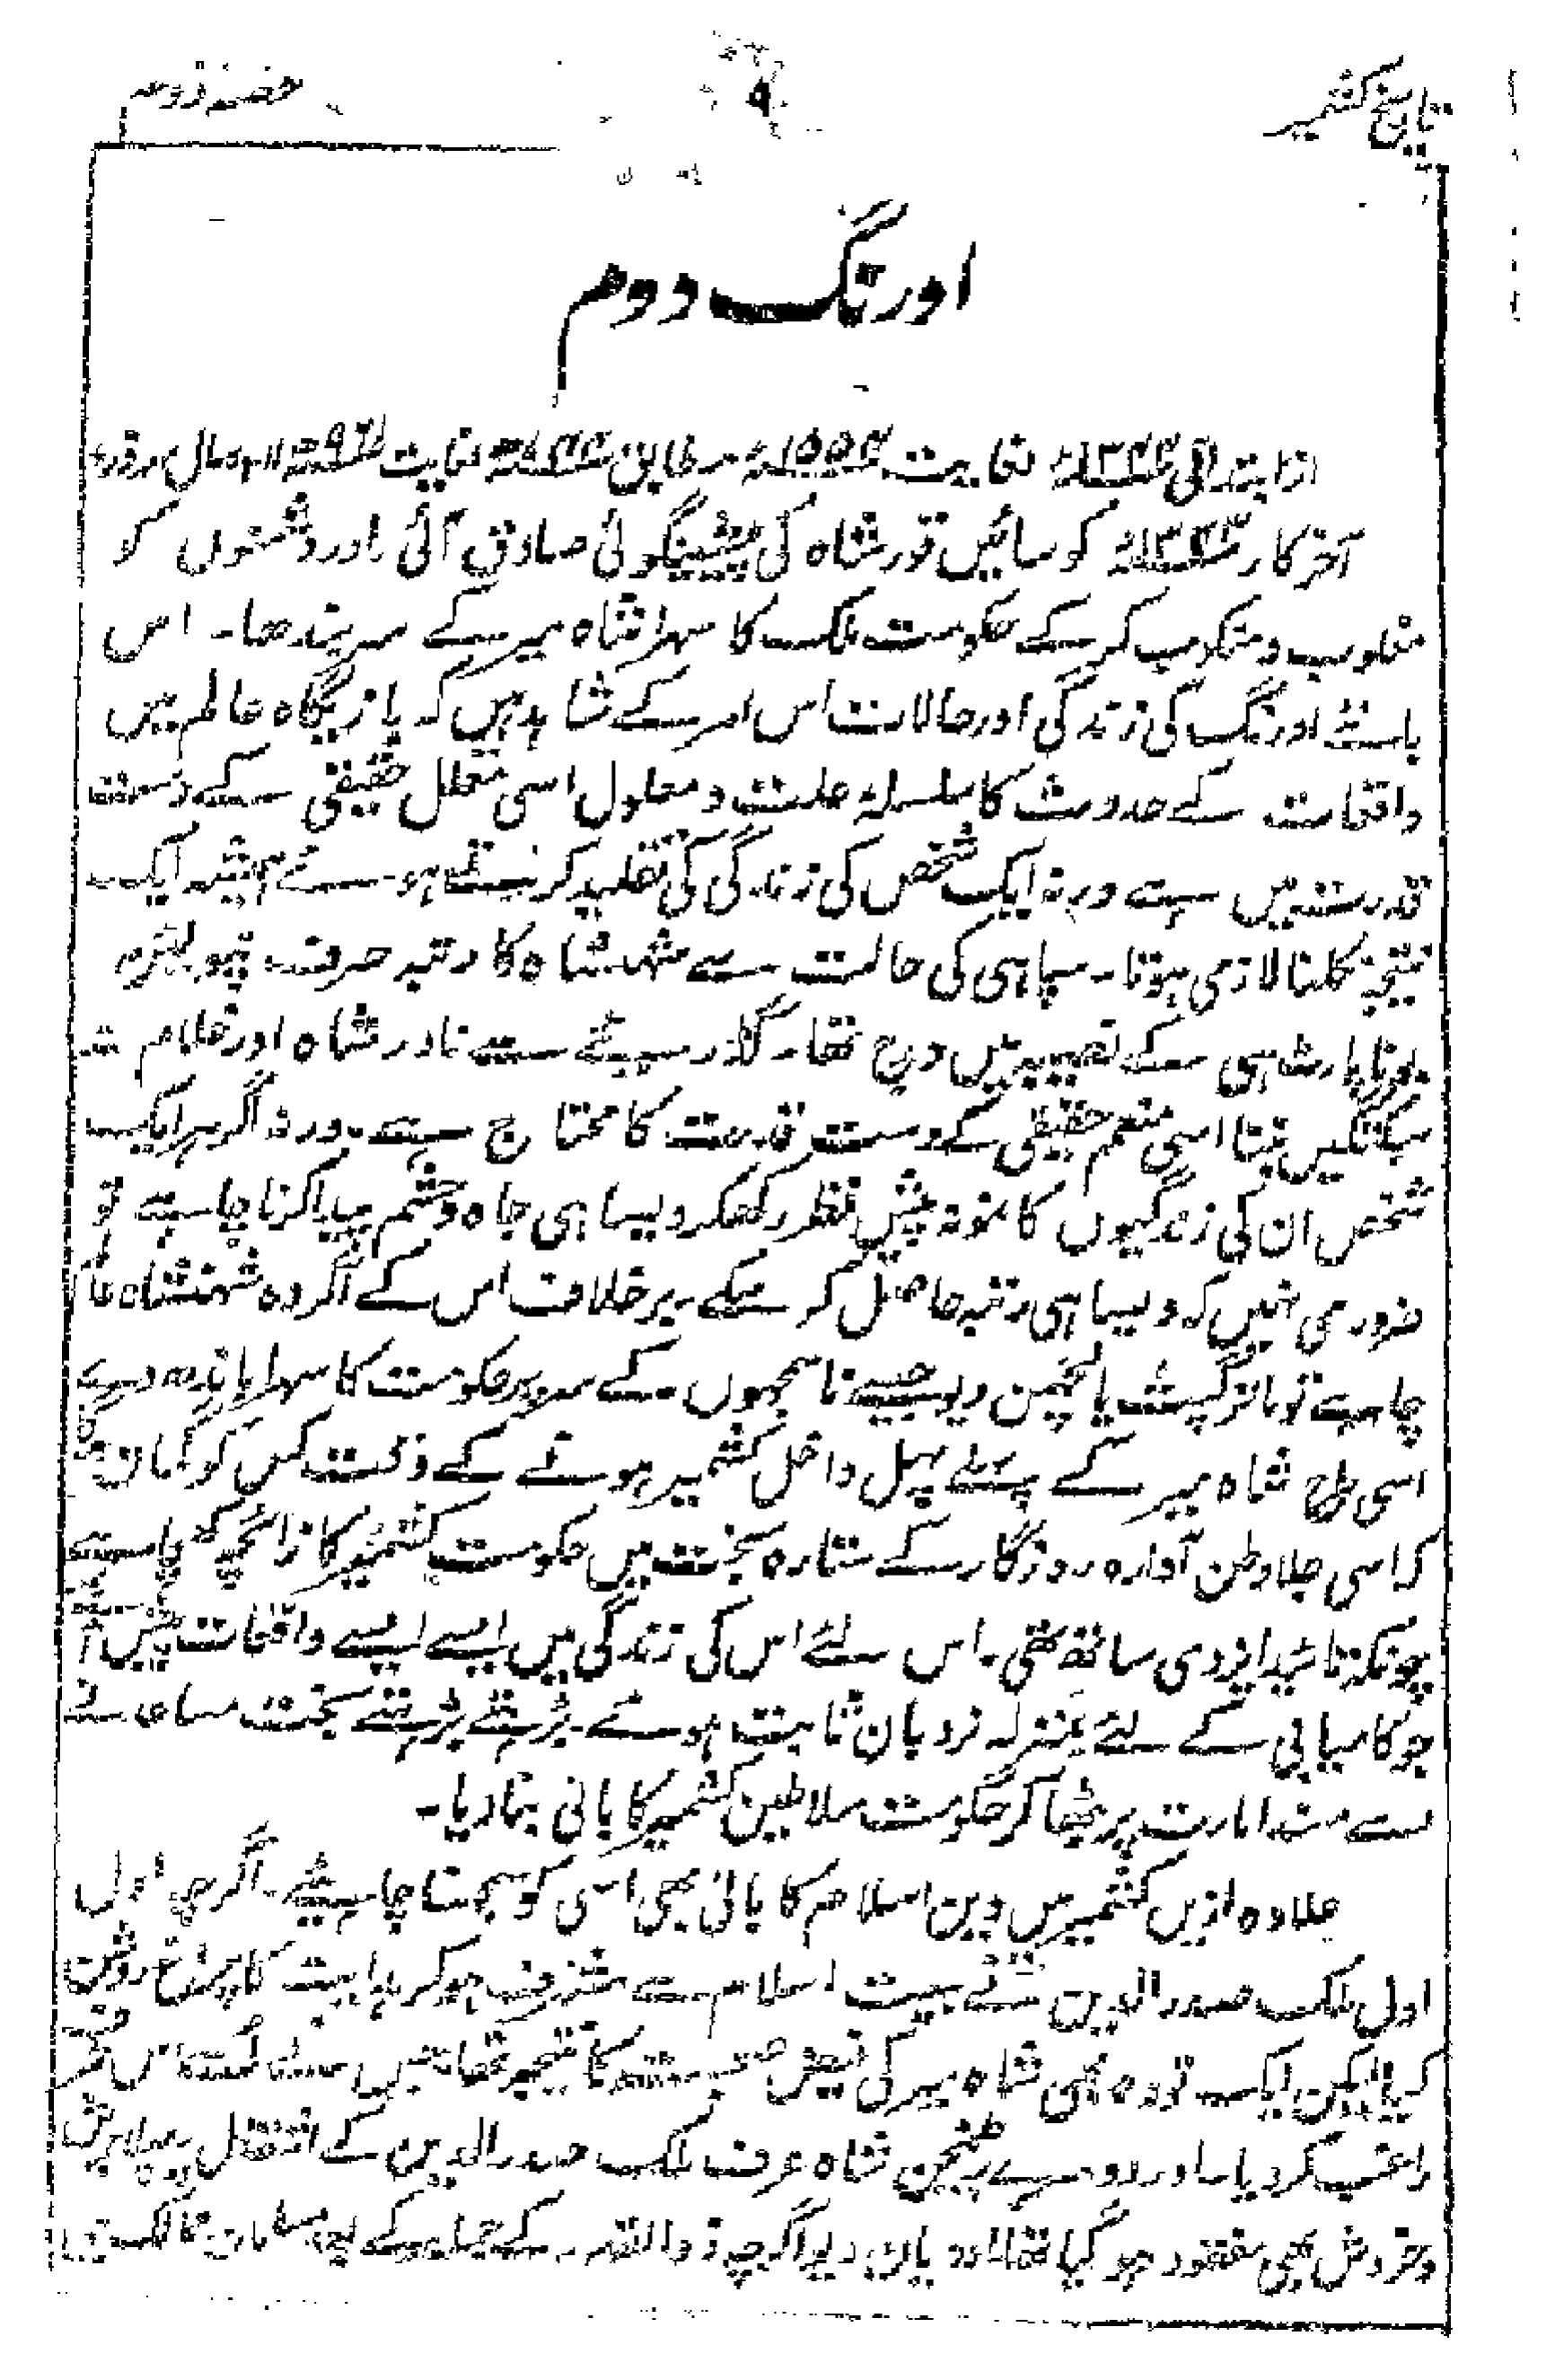 تاریخ کشمیر
۹
حصہ دوم
اورنگ دوم
از ابتدائی ۱۳۴۳ء لغایت ۱۵۵۴ء مطابق لغایت سال
آخرکار ۱۳۴۳ء کو سائیں قور شاہ کی پیشینگوئی صادق آئی اور دشمنوں کو
مغلوب و منکوب کرکے حکومت ملک کا سہرا شاہ میر کے سر بندھا۔ اس
بانئے اورنگ کی زندگی اور حالات اس امر کے شاہد ہیں کہ بازیگاہ عالم میں
واقعات کے حدوث کا سلسلہ علت و معلول اسی معلل حقیقی کے دست
قدرت میں ہے ورنہ ایک شخص کی زندگی کی تقلید کرنیسے ہمیشہ ایک
نتیجہ نکلنا لازمی ہوتا۔ سپاہی کی حالت سے شہنشاہ کا رتبہ صرف نپولین
بوناپارٹ ہی کے نصیبہ میں درج تھا۔ گڈریئے سے نادر شاہ اور غلام سے
سبکتگین بننا اسی منعم حقیقی کے دست قدرت کا محتاج ہے۔ ورنہ اگر ہر ایک
شخص ان کی زندگیوں کا نمونہ پیش نظر رکھکر ویسا ہی جاہ و حشم پیدا کرنا چاہے تو
ضروری نہیں کہ ویسا ہی رتبہ حاصل کر سکے۔ برخلاف اس کے اگر وہ شہنشاہ
چاہے تو یا لچھمن دیو جیسے ناسمجہوں کے سر پر حکومت کا سہرا باندھ دے
اسی طرح شاہ میر کے پہلے پہل داخل کشمیر ہونے کے وقت کس کو گمان تھا
کہ اسی جلاوطن آوارہ روزگار کے ستارہ بخت میں حکومت کشمیر کا زائچہ
چونکہ تائید ایزدی ساتھ تھی۔ اس لئے اس کی زندگی میں ایسے ایسے واقعات پیش آئے
جو کامیابی کے لئے بمنزلہ نردبان ثابت ہوئے۔ بڑہتے بڑہتے بخت مساعد نے
اسے مسند امارت پر بٹھا کر حکومت سلاطین کشمیر کا بانی بنا دیا۔
علاوہ ازیں کشمیر میں دین اسلام کا بانی بھی اسی کو سمجہنا چاہیئے۔ اگرچہ اول
اول ملک صدرالدین نے بیعت اسلام سے مشرف ہوکر ہدایت کا چراغ روشن
کیا لیکن ایک تو وہ بھی شاہ میر کی فیض صحبت کا نتیجہ تھا جس نے اس طرف
راغب کر دیا۔ اور دوسرے رینچن شاہ عرف ملک صدرالدین کے انتقال پر
و خروش بھی مفقود ہو گیا تھا اور یان دیو اگرچہ ذوالقدر کے حملہ کے بعد مسلمان